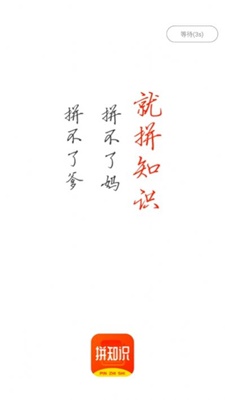 等待(3s)
就拼知识
拼不了妈
拼不了爹
拼知识
PIN ZHI SHI